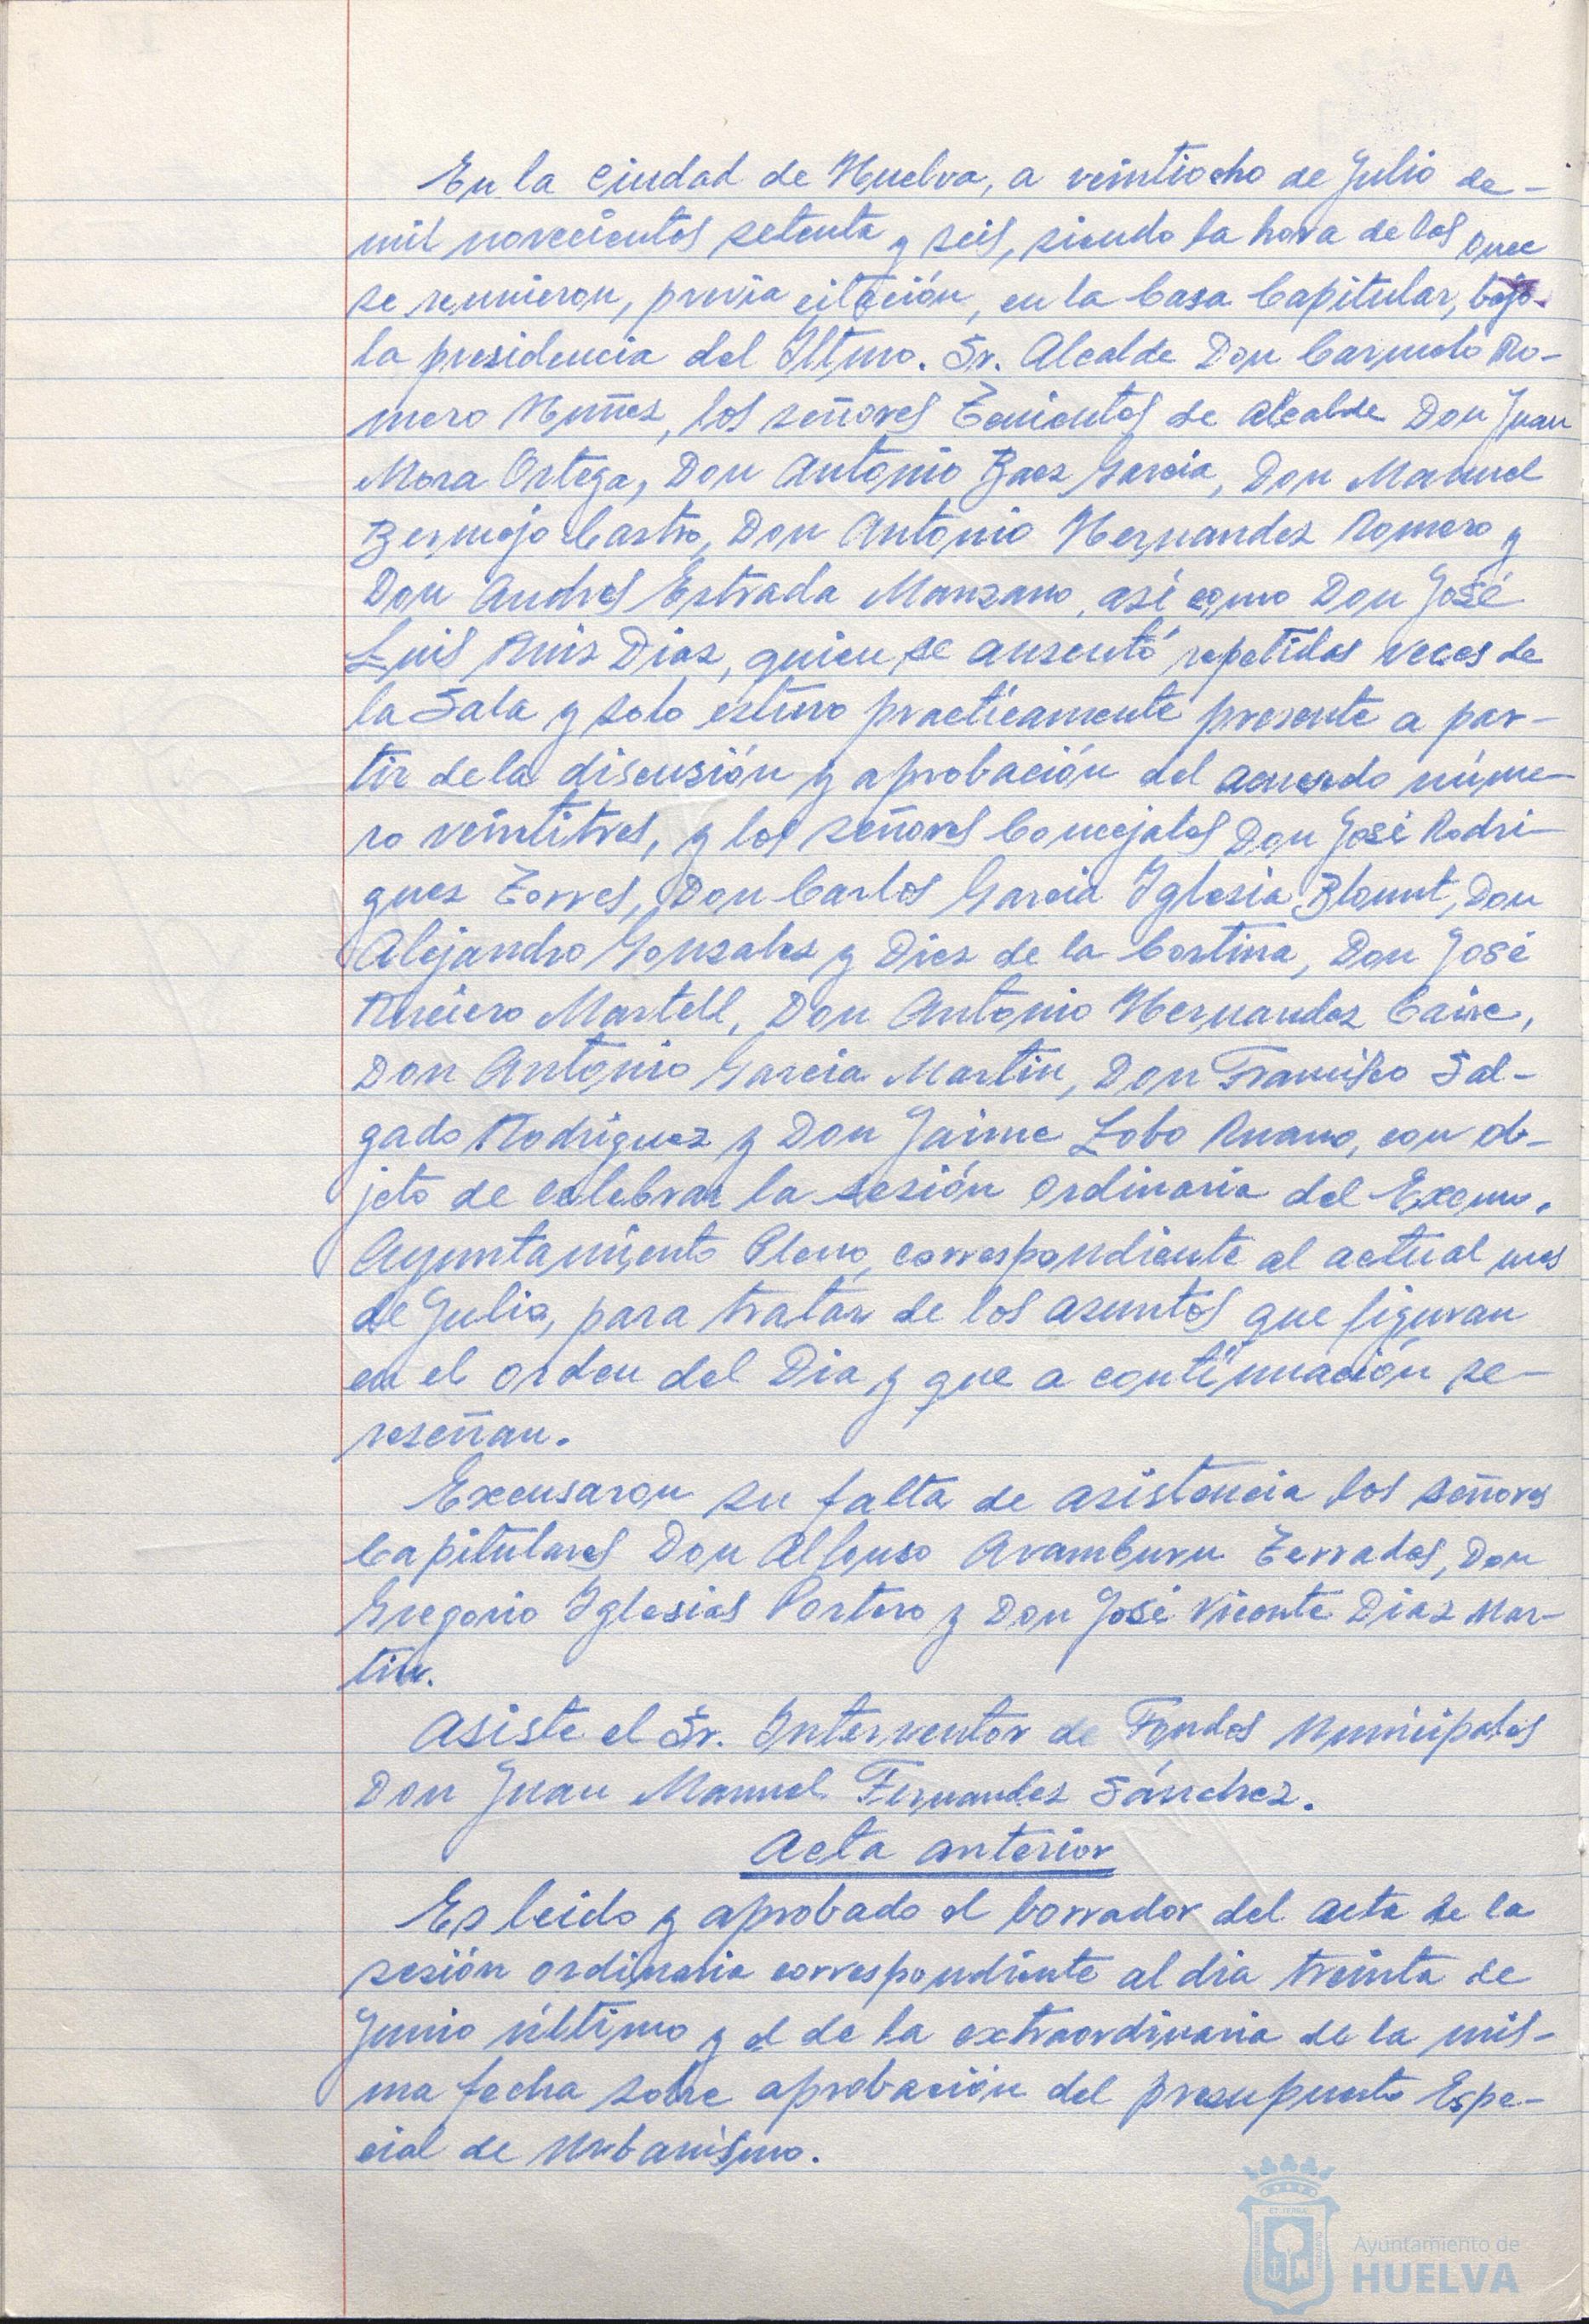 En la Ciudad de Huelva, a veintiocho de Julio de-
mil novecientos setenta y seis, siendo la hora de las once
se reunieron, previa citación, en la Casa Capitular, bajo
la presidencia del Iltmo. Sr. Alcalde Don Carmelo Ro-
mero Nuñez, los señores Tenientes de Alcalde Don Juan
Mora Ortega, Don Antonio Baez Garcia, Don Manuel
Bermejo Castro, Don Antonio Hernandez Romero y
Don Andres Estrada Manzano, así como Don José
Luis Ruiz Diaz, quien se ausentó repetidas veces de
la Sala y solo estuvo practicamente presente a par-
tir de la discusión y aprobación del acuerdo núme-
ro veintitres, y los señores Concejales Don José Rodri-
guez Torres, Don Carlos Garcia Iglesia Blount, Don
Alejandro Gonzalez y Diez de la Cortina, Don José
Ruciero Martell, Don Antonio Hernandez Caire,
Don Antonio Garcia Martin, Don Francisco Sal-
gado Rodriguez y Don Jaime Lobo Ruano, con ob-
jeto de celebrar la sesión ordinaria del Excmo.
Ayuntamiento Pleno, correspondiente al actual mes
de Julio, para tratar de los asuntos que figuran
en el orden del Dia y que a continuación se-
reseñan.
Excusaron su falta de asistencia los señores
Capitulares Don Alfonso Aramburu Terrades, Don
Gregorio Iglesias Portero y Don José Vicente Diaz Mar-
tin.
Asiste el Sr. Interventor de Fondos Municipales
Don Juan Manuel Fernandez Sánchez.
Acta anterior
Es leido y aprobado el borrador del acta de la
sesión ordinaria correspondiente al dia treinta de
Junio último y el de la extraordinaria de la mis-
ma fecha sobre aprobación del presupuesto Espe-
cial de Urbanismo.
Ayuntamiento de
HUELVA